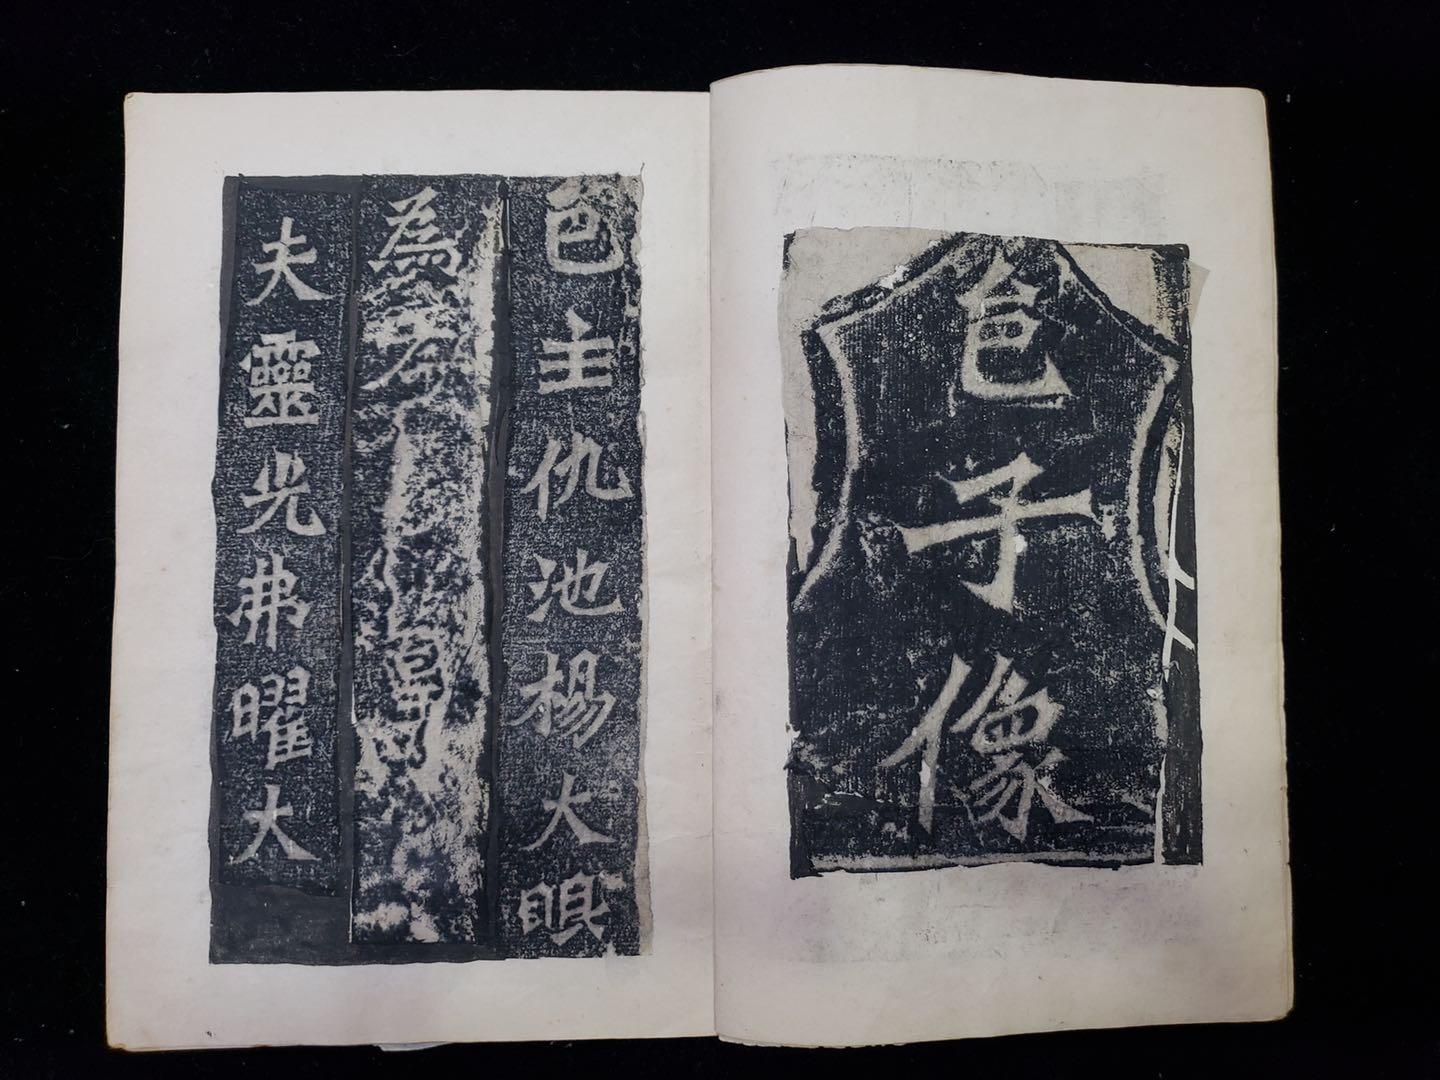 邑子像
邑主仇池楊大眼
為孝
夫靈光弗曜大